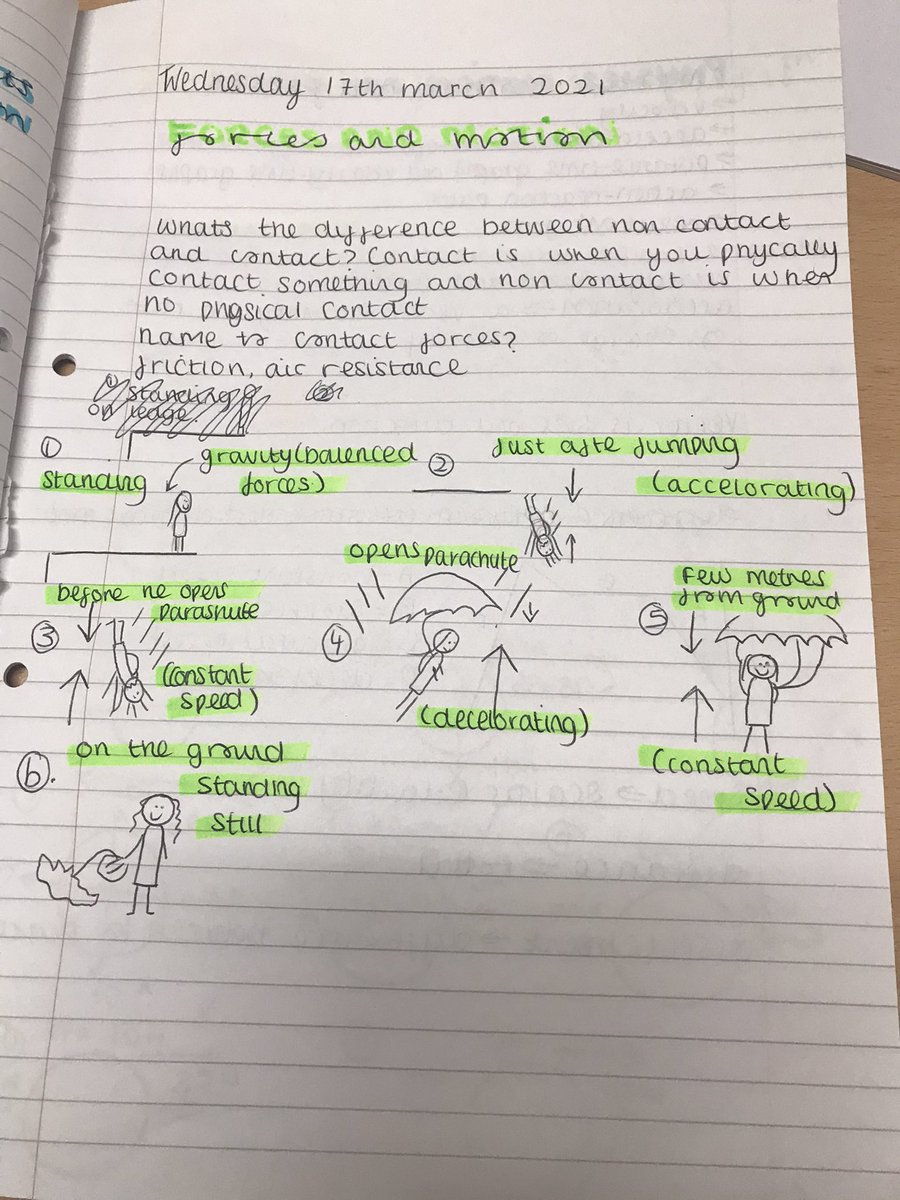 Wednesday 17th march 2021
Forces and motion
whats the dyfference between non contact
and contact? Contact is when you phycally
contact something and non contact is when
no physical contact
name to contact forces?
friction, air resistance
① standing
on ledge.
①
standing
gravity (balenced
forces)
②
Just afte Jumping
(accelorating)
before he opens
parashute
③
(constant
speed)
opens parachute
④
(decelorating)
Few metres
from ground
⑤
(constant
speed)
⑥.
on the ground
standing
still